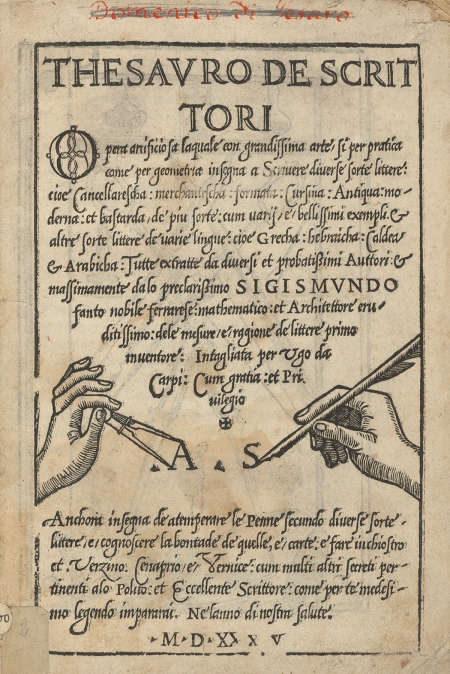 Domenico di
THESAVRO DE SCRIT
TORI
Opera artificiosa laquale con grandissima arte, si per pratica
come per geometria insegna a Scriuere diuerse sorte littere:
cioe Cancellarescha: merchantescha: formata: Cursiua: Antiqua: mo-
derna: et bastarda, de piu sorte: cum varij, e, bellissimi exempli. &
altre sorte littere de varie lingue: cioe Grecha: hebraicha: Caldea
& Arabicha: Tutte extratte da diuersi et probatissimi Auttori: &
massimamente da lo preclarissimo SIGISMVNDO
fanto nobile ferrarese: mathematico: et Architettore eru-
ditissimo: dele mesure, e, ragione de littere primo
inuentore: Intagliata per Vgo da
Carpi: Cum gratia: et Pri
uilegio
✠
A S
Anchora insegna de atemperare le Penne secundo diuerse sorte
littere, e, cognoscere la bontade de quelle, e, carte: e fare inchiostro
et Verzino: Cenaprio, e Vernice: cum multi altri secreti per-
tinenti alo Polito: et Eccellente Scrittore: come per te medesi-
mo legendo impararai. Ne lanno di nostra salute.
·M·D·XX X V